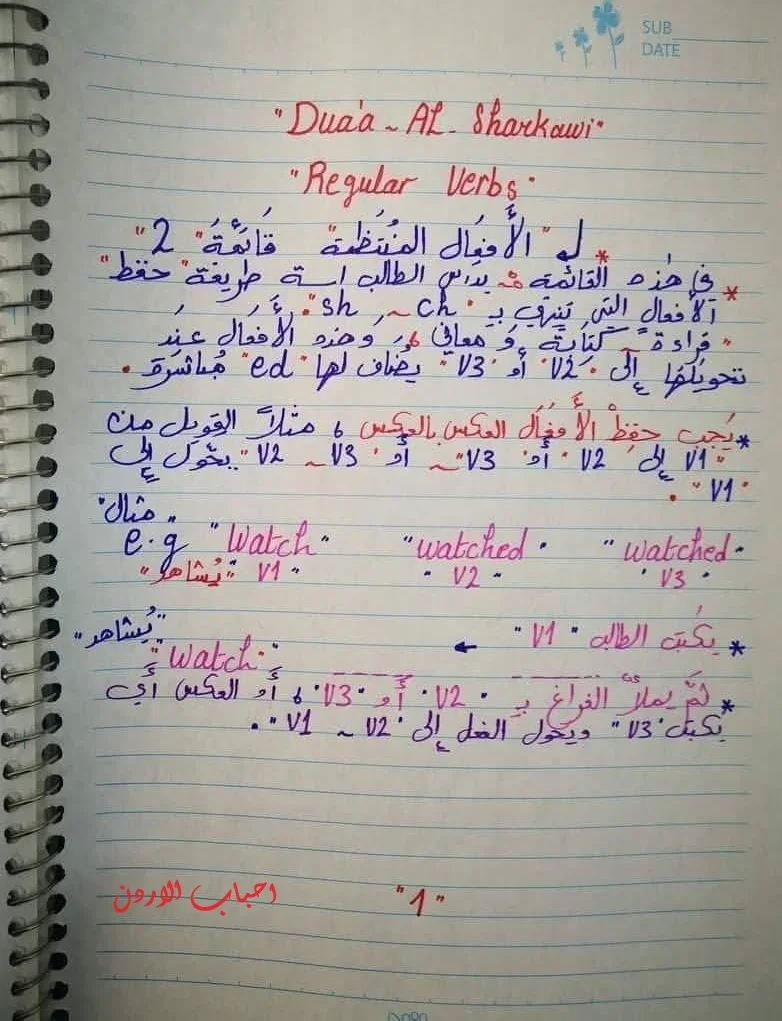 SUB
DATE
"Dua'a ~ AL - Sharkawi"
"Regular Verbs"
لـ "الأَفعَال المُنتَظمة" قَائمَة "2"
* في هٰذه القائمة يدرس الطالب طريقة "حفظ"
الأفعال التي تنتهي بـ "sh ~ ch" أَو
"قراءة ~ كتابة وَ معاني"، وَهذه الأَفعَال عند
تحويلها إلى "V2" أو "V3" يُضاف لها "ed" مُباشرة.
* يَجب حفظْ الأَفعَال العكس بالعكس، مثلاً التحويل من
"V1" إلى V2 أَو "V3" ~ أَو V2 ~ V3 يحَّول إلى
"V1".
"مثال"
e.g "Watch" "watched" "watched"
"يُشاهد" V1 "V2" "V3"
* يكتب الطالب "V1" ← "يُشاهد"
"Watch"
* ثمَّ يملأ الفراغ بـ "V2" أَو "V3"، أَو العكس أَي
يكتب "V3" ويحول الفعل إلى "V1 ~ V2".
احباب الاردن
"1"